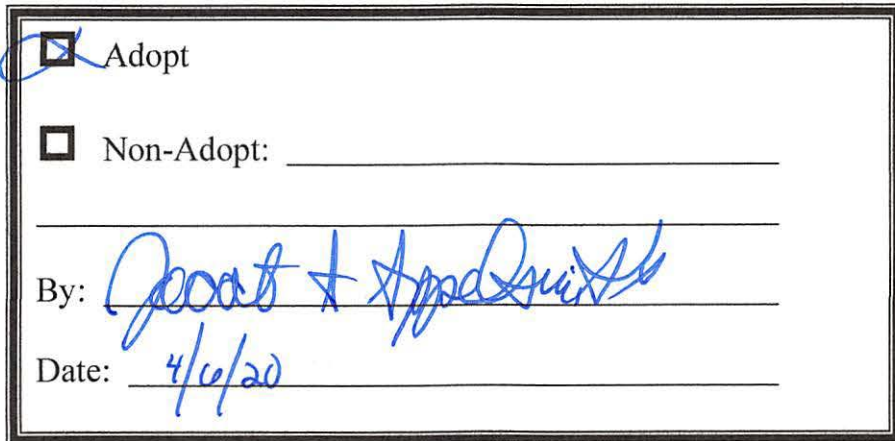 Adopt
Non-Adopt:
By:
Date: 4/6/20